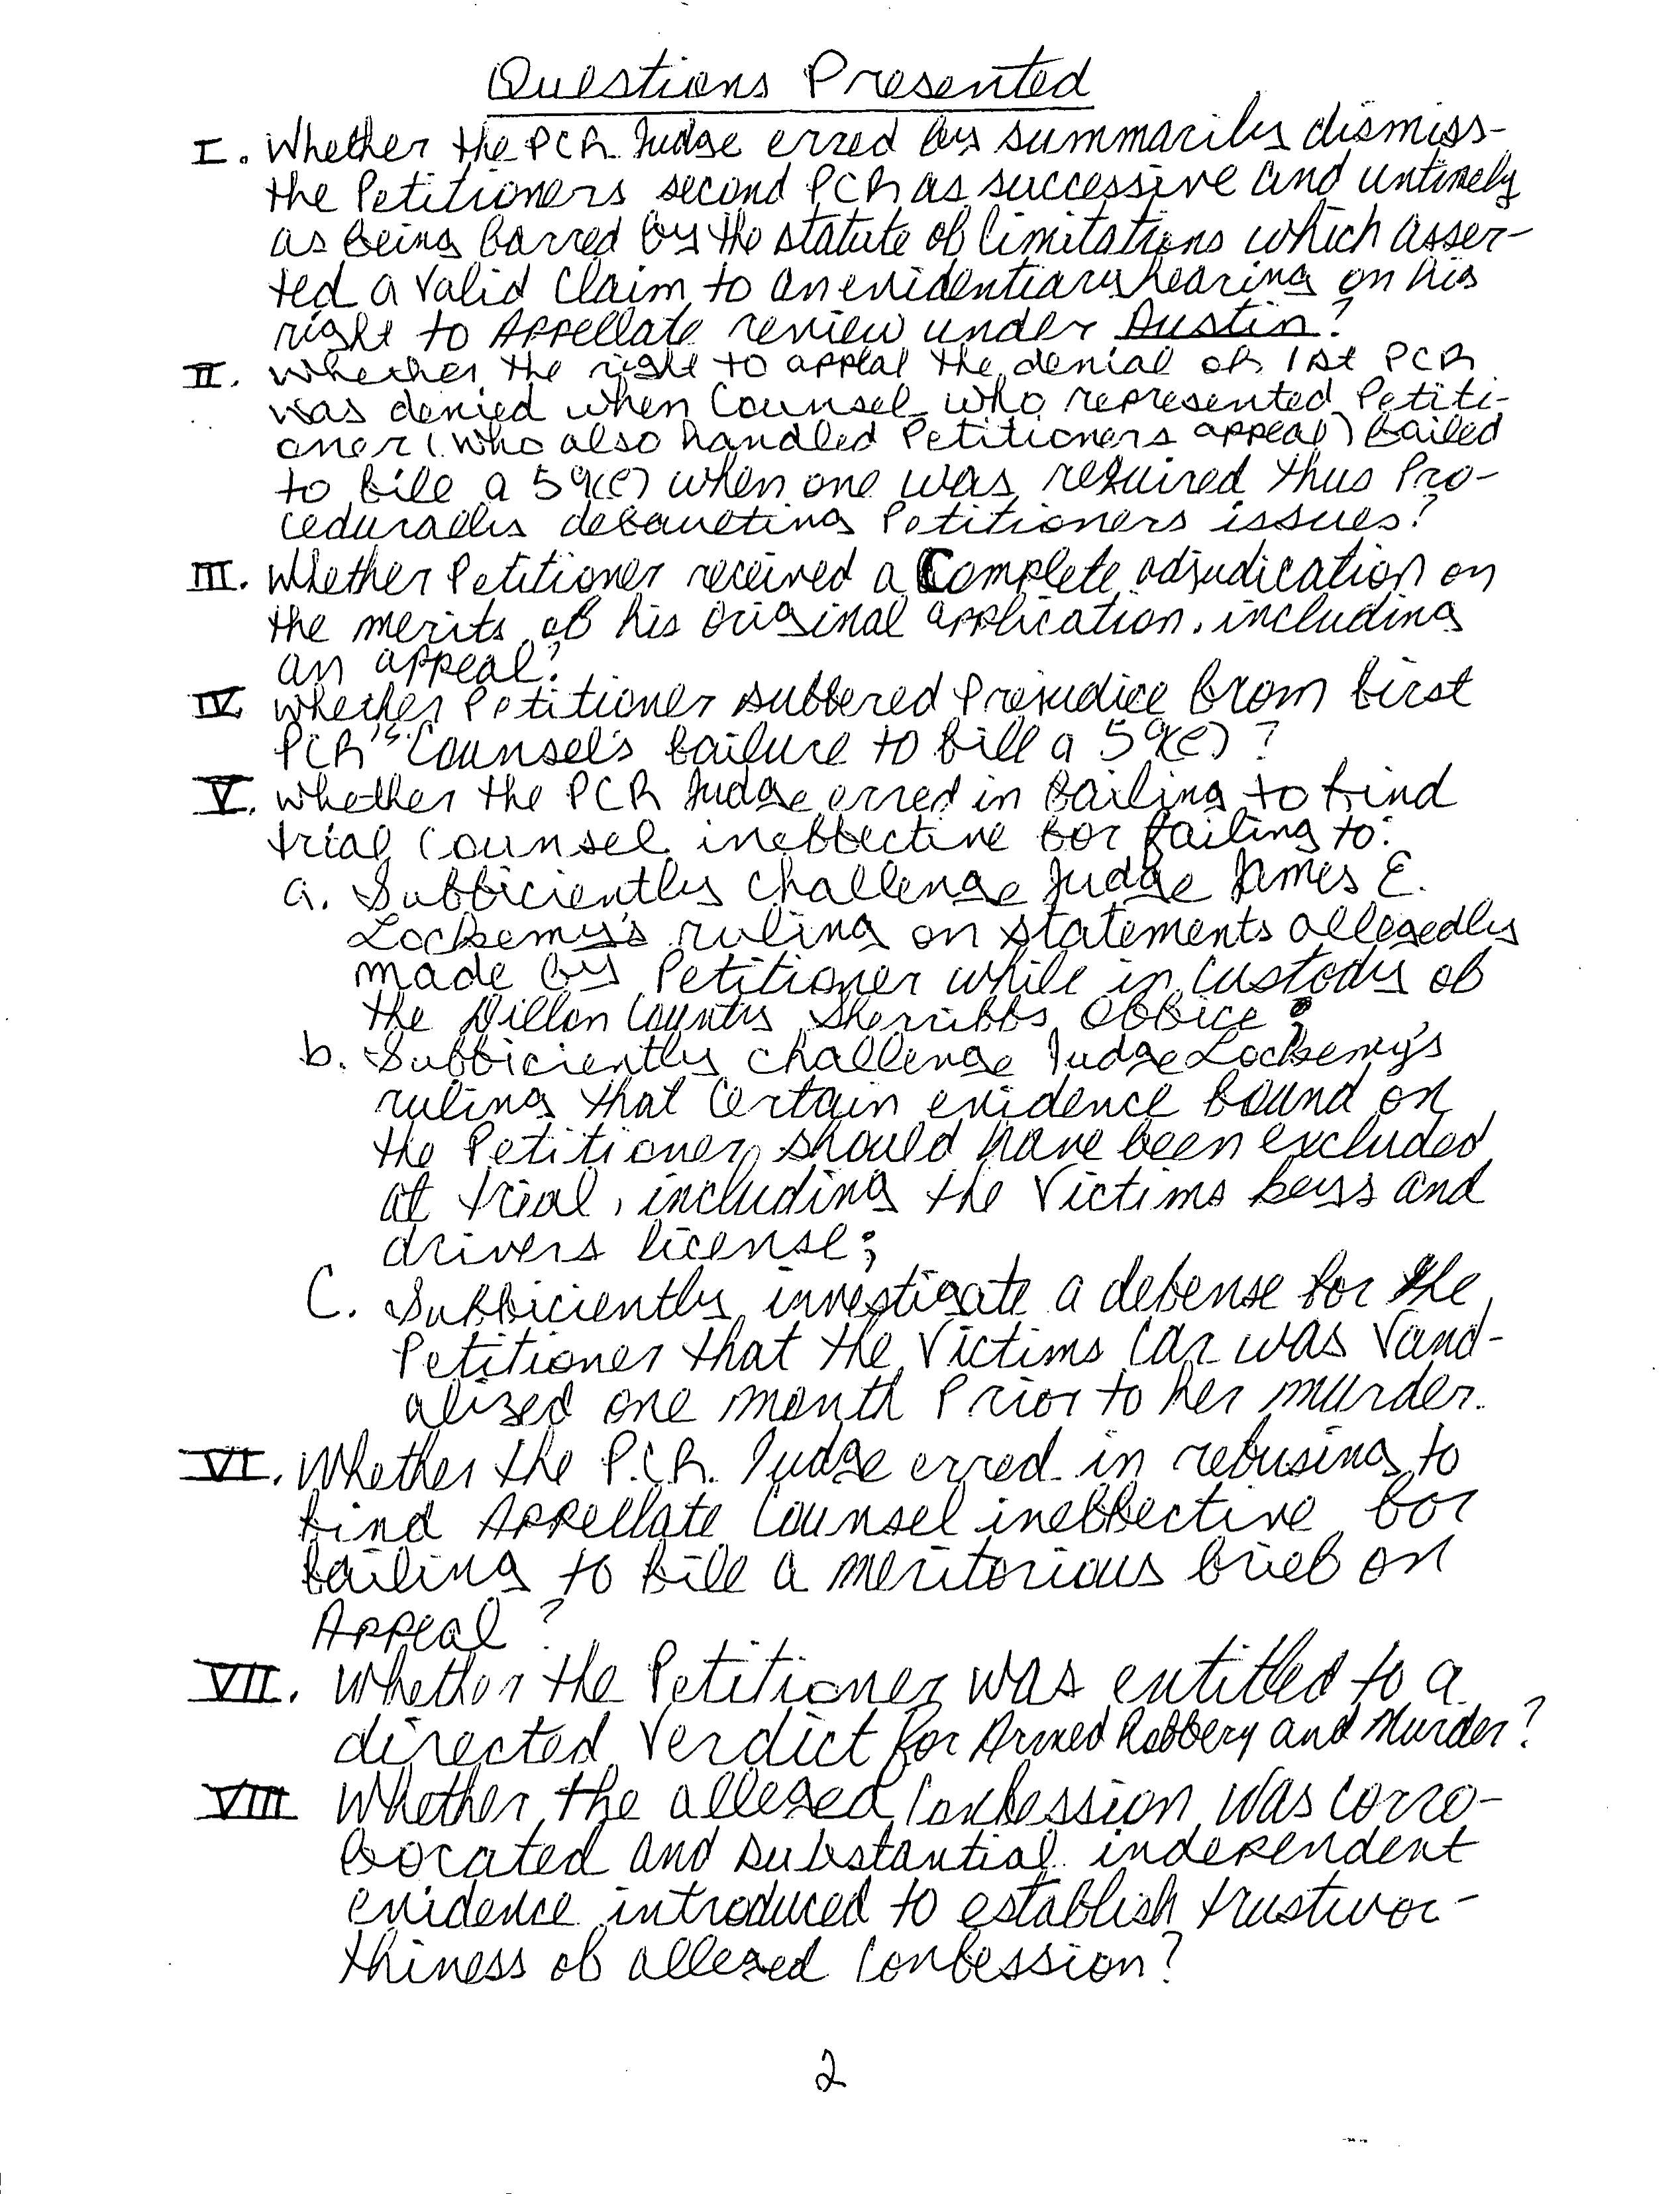 Questions Presented
I. Whether the PCR Judge erred by summarily dismiss-
the Petitioners second PCR as successive and untimely
as being barred by the statute of limitations which asser-
ted a valid claim to an evidentiary hearing on his
right to Appellate review under Austin?
II. Whether the right to appeal the denial of 1st PCR
was denied when Counsel who represented Petiti-
oner (who also handled Petitioners appeal) failed
to file a 59(e) when one was required thus Pro-
cedurally defaulting Petitioners issues?
III. Whether Petitioner received a Complete adjudication on
the merits of his original application, including
an appeal?
IV. Whether Petitioner suffered Prejudice from first
PCR's Counsel's failure to fill a 59(e)?
V. Whether the PCR Judge erred in failing to find
trial Counsel ineffective for failing to:
a. Sufficiently challenge Judge James E.
Lockemy's ruling on statements allegedly
made by Petitioner while in custody of
the Dillon County Sheriffs Office;
b. Sufficiently challenge Judge Lockemy's
ruling that certain evidence found on
the Petitioner, should have been excluded
at trial, including the Victims keys and
drivers license;
C. Sufficiently investigate a defense for the
Petitioner that the Victims Car was Vand-
alized one month Prior to her murder.
VI. Whether the P.C.R. Judge erred in refusing to
find Appellate Counsel ineffective for
failing to file a meritorious brief on
Appeal?
VII. Whether the Petitioner was entitled to a
directed Verdict for Armed Robbery and Murder?
VIII Whether the alleged Confession was corro-
borated and substantial independent
evidence introduced to establish trustwor-
thiness of alleged Confession?
2